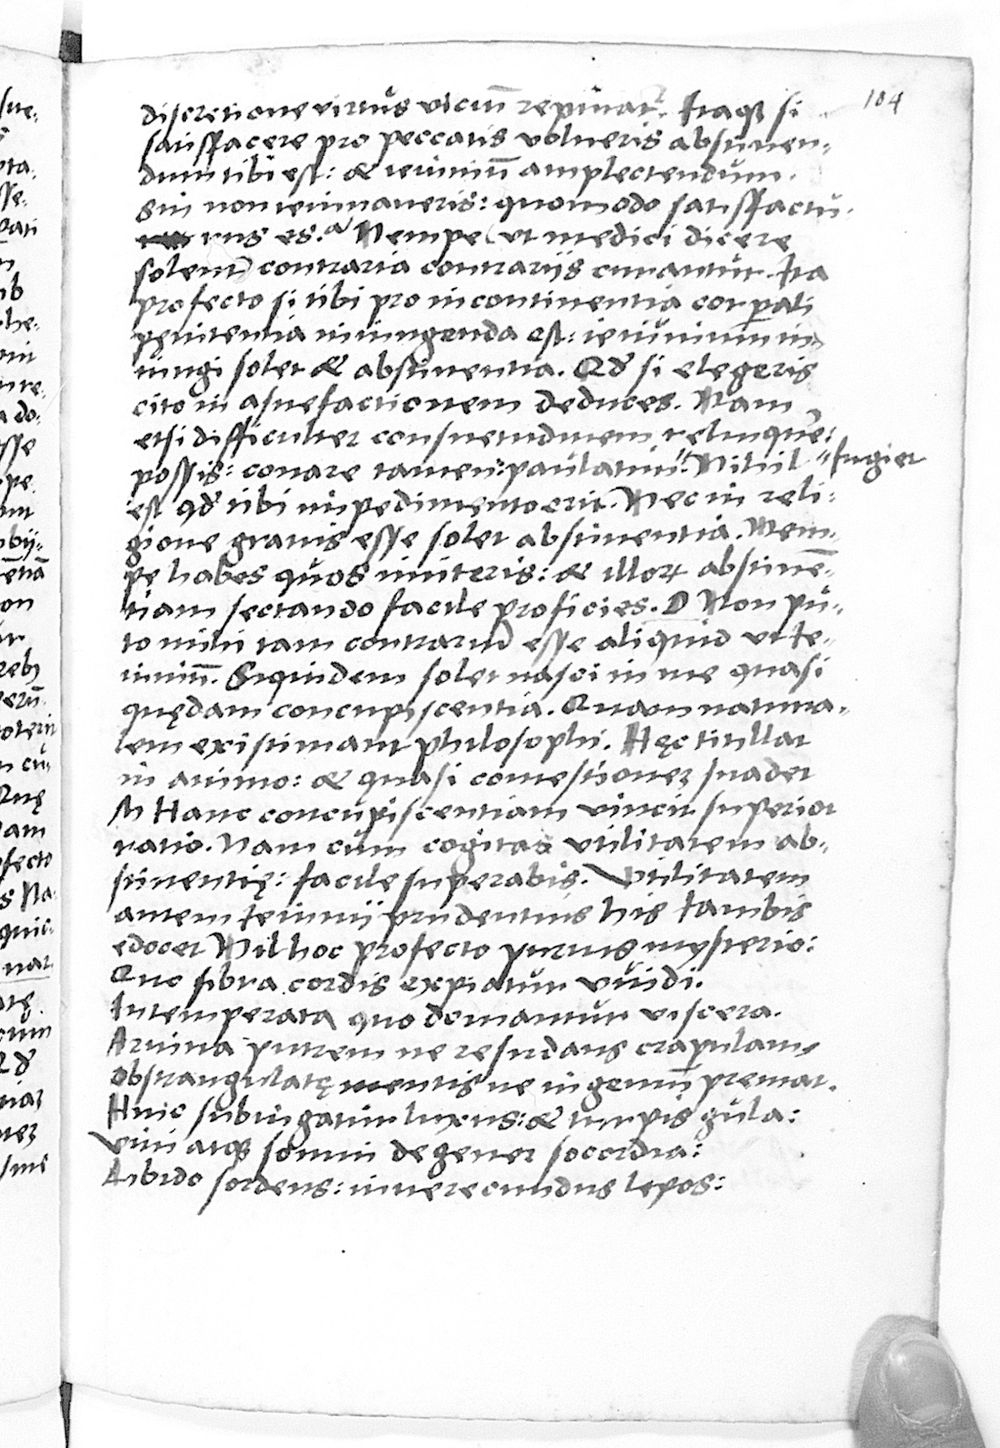 104
discretione virtus viciũ reputat᷑. Itaqꝫ si
satisfacere pro peccatis volueris abstinen-
dum tibi est: & ieiuniũ amplectendum.
Sin non ieiunaveris: quomodo satisfactu-
rus es. Nempe (ut medici dicere
solent) contraria contrariis curantur. Ita
profecto si tibi pro incontinentia corꝑali
penitentia iniungenda est: ieiunium in-
iungi solet & abstinentia. Qđ si elegeris
cito in asuefactionem deduces. Nam
etsi difficulter consuetudinem relinquẽ:
possis: conare tamen: paulatim. Nihil " fugiet
est qđ tibi impedimento erit. Nec in reli-
gione gravis esse solet abstinentia. Nem-
pe habes quos imiteris: & illoꝝ abstinẽ-
tiam sectando facile proficies. D Non pu-
to mihi tam contrariũ esse aliquid ut Ie-
iuniũ. Siquidem solet nasci in me quasi
quędam concupiscentia. Quam natura-
lem existimant philosophi. Hęc titillat
in animo: & quasi comestionem suadet
M Hanc concupiscentiam vincit superior
ratio. Nam cum cogitas utilitatem ab-
stinentię: facile superabis. Utilitatem
autem Ieiunij prudentius his Iambis
edocet Nil hoc profecto purius mysterio:
Quo fibra cordis expiatur vividi.
Intemperata quo domantur viscera.
Arvina putrem ne resudans crapulam
Obstrangulatę mentis ne ingeniũ premat.
Hinc subiugatur luxus: & turpis gula:
Vini atqꝫ somni degener socordia:
Libido sordens: inverecundus lepos: